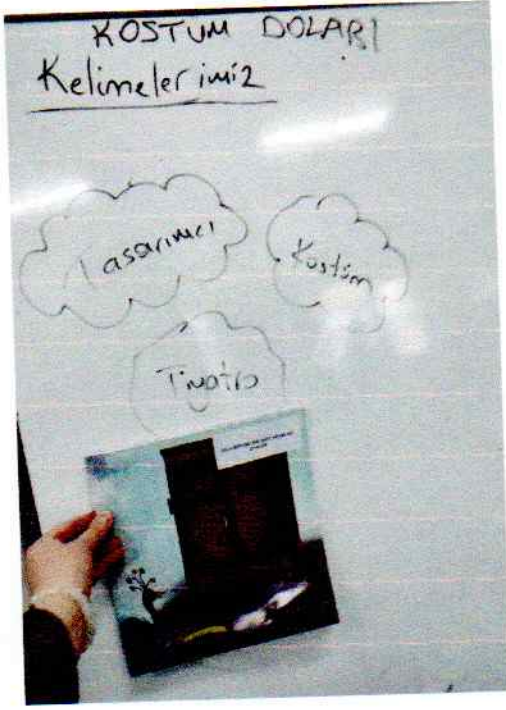 KOSTÜM DOLABI
Kelimelerimiz
Tasarımcı
Kostüm
Tiyatro